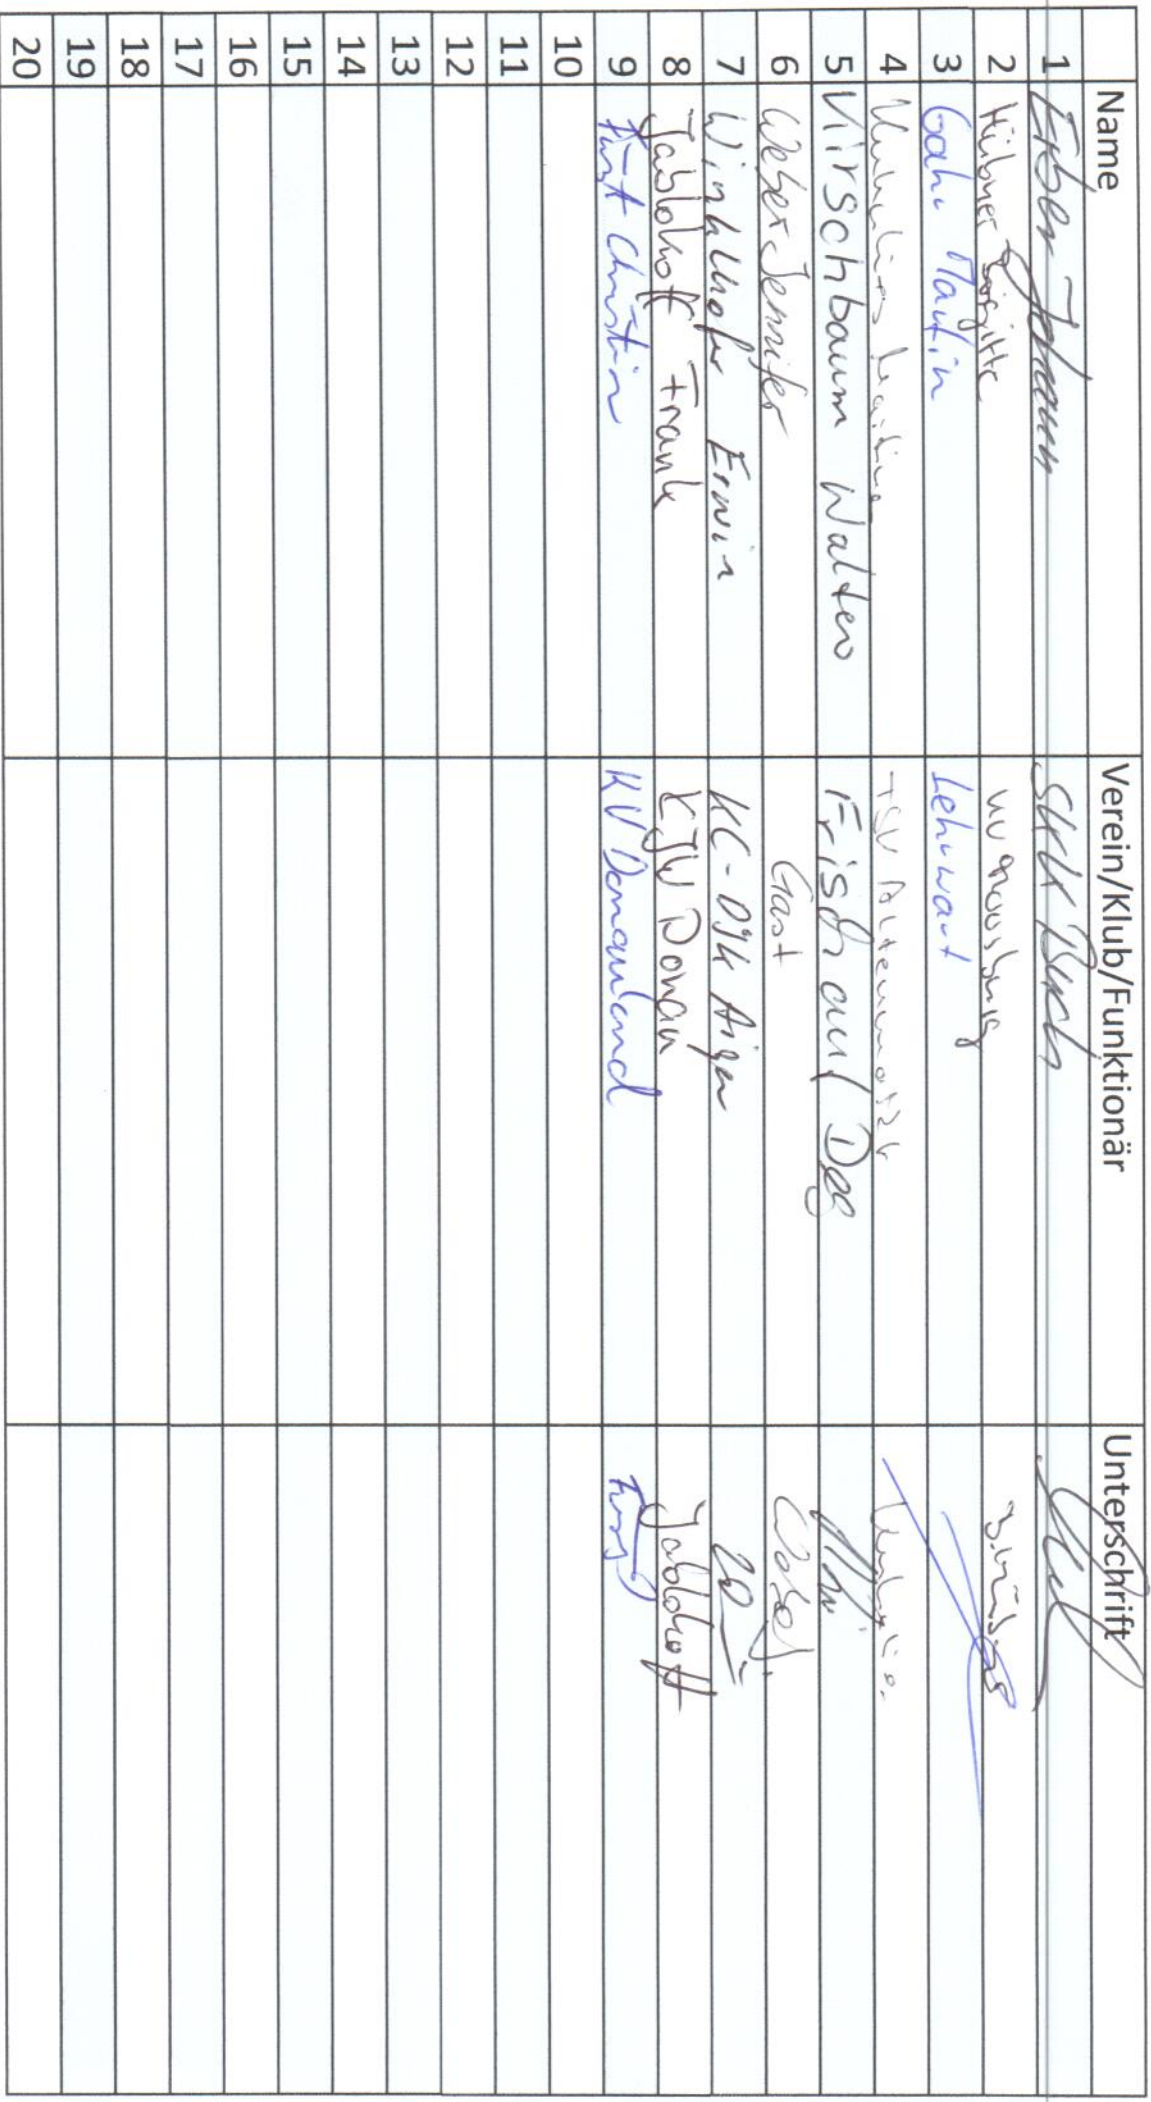 Name Verein/Klub/Funktionär Unterschrift
1 Erber Johann SKK Buch
2 Hübner Brigitte KV Moosburg
3 Gahr Martin Lehrwart
4 TSV
5 Kirschbaum Walter Frisch auf Deg
6 Weber Jennifer Gast Weber J.
7 Winklhofer Erwin KC-DJK Aigen
8 Jablohoff Frank KJW Donau Jablohoff
9 Fürst Christin KV Donauland Fürst
10
11
12
13
14
15
16
17
18
19
20